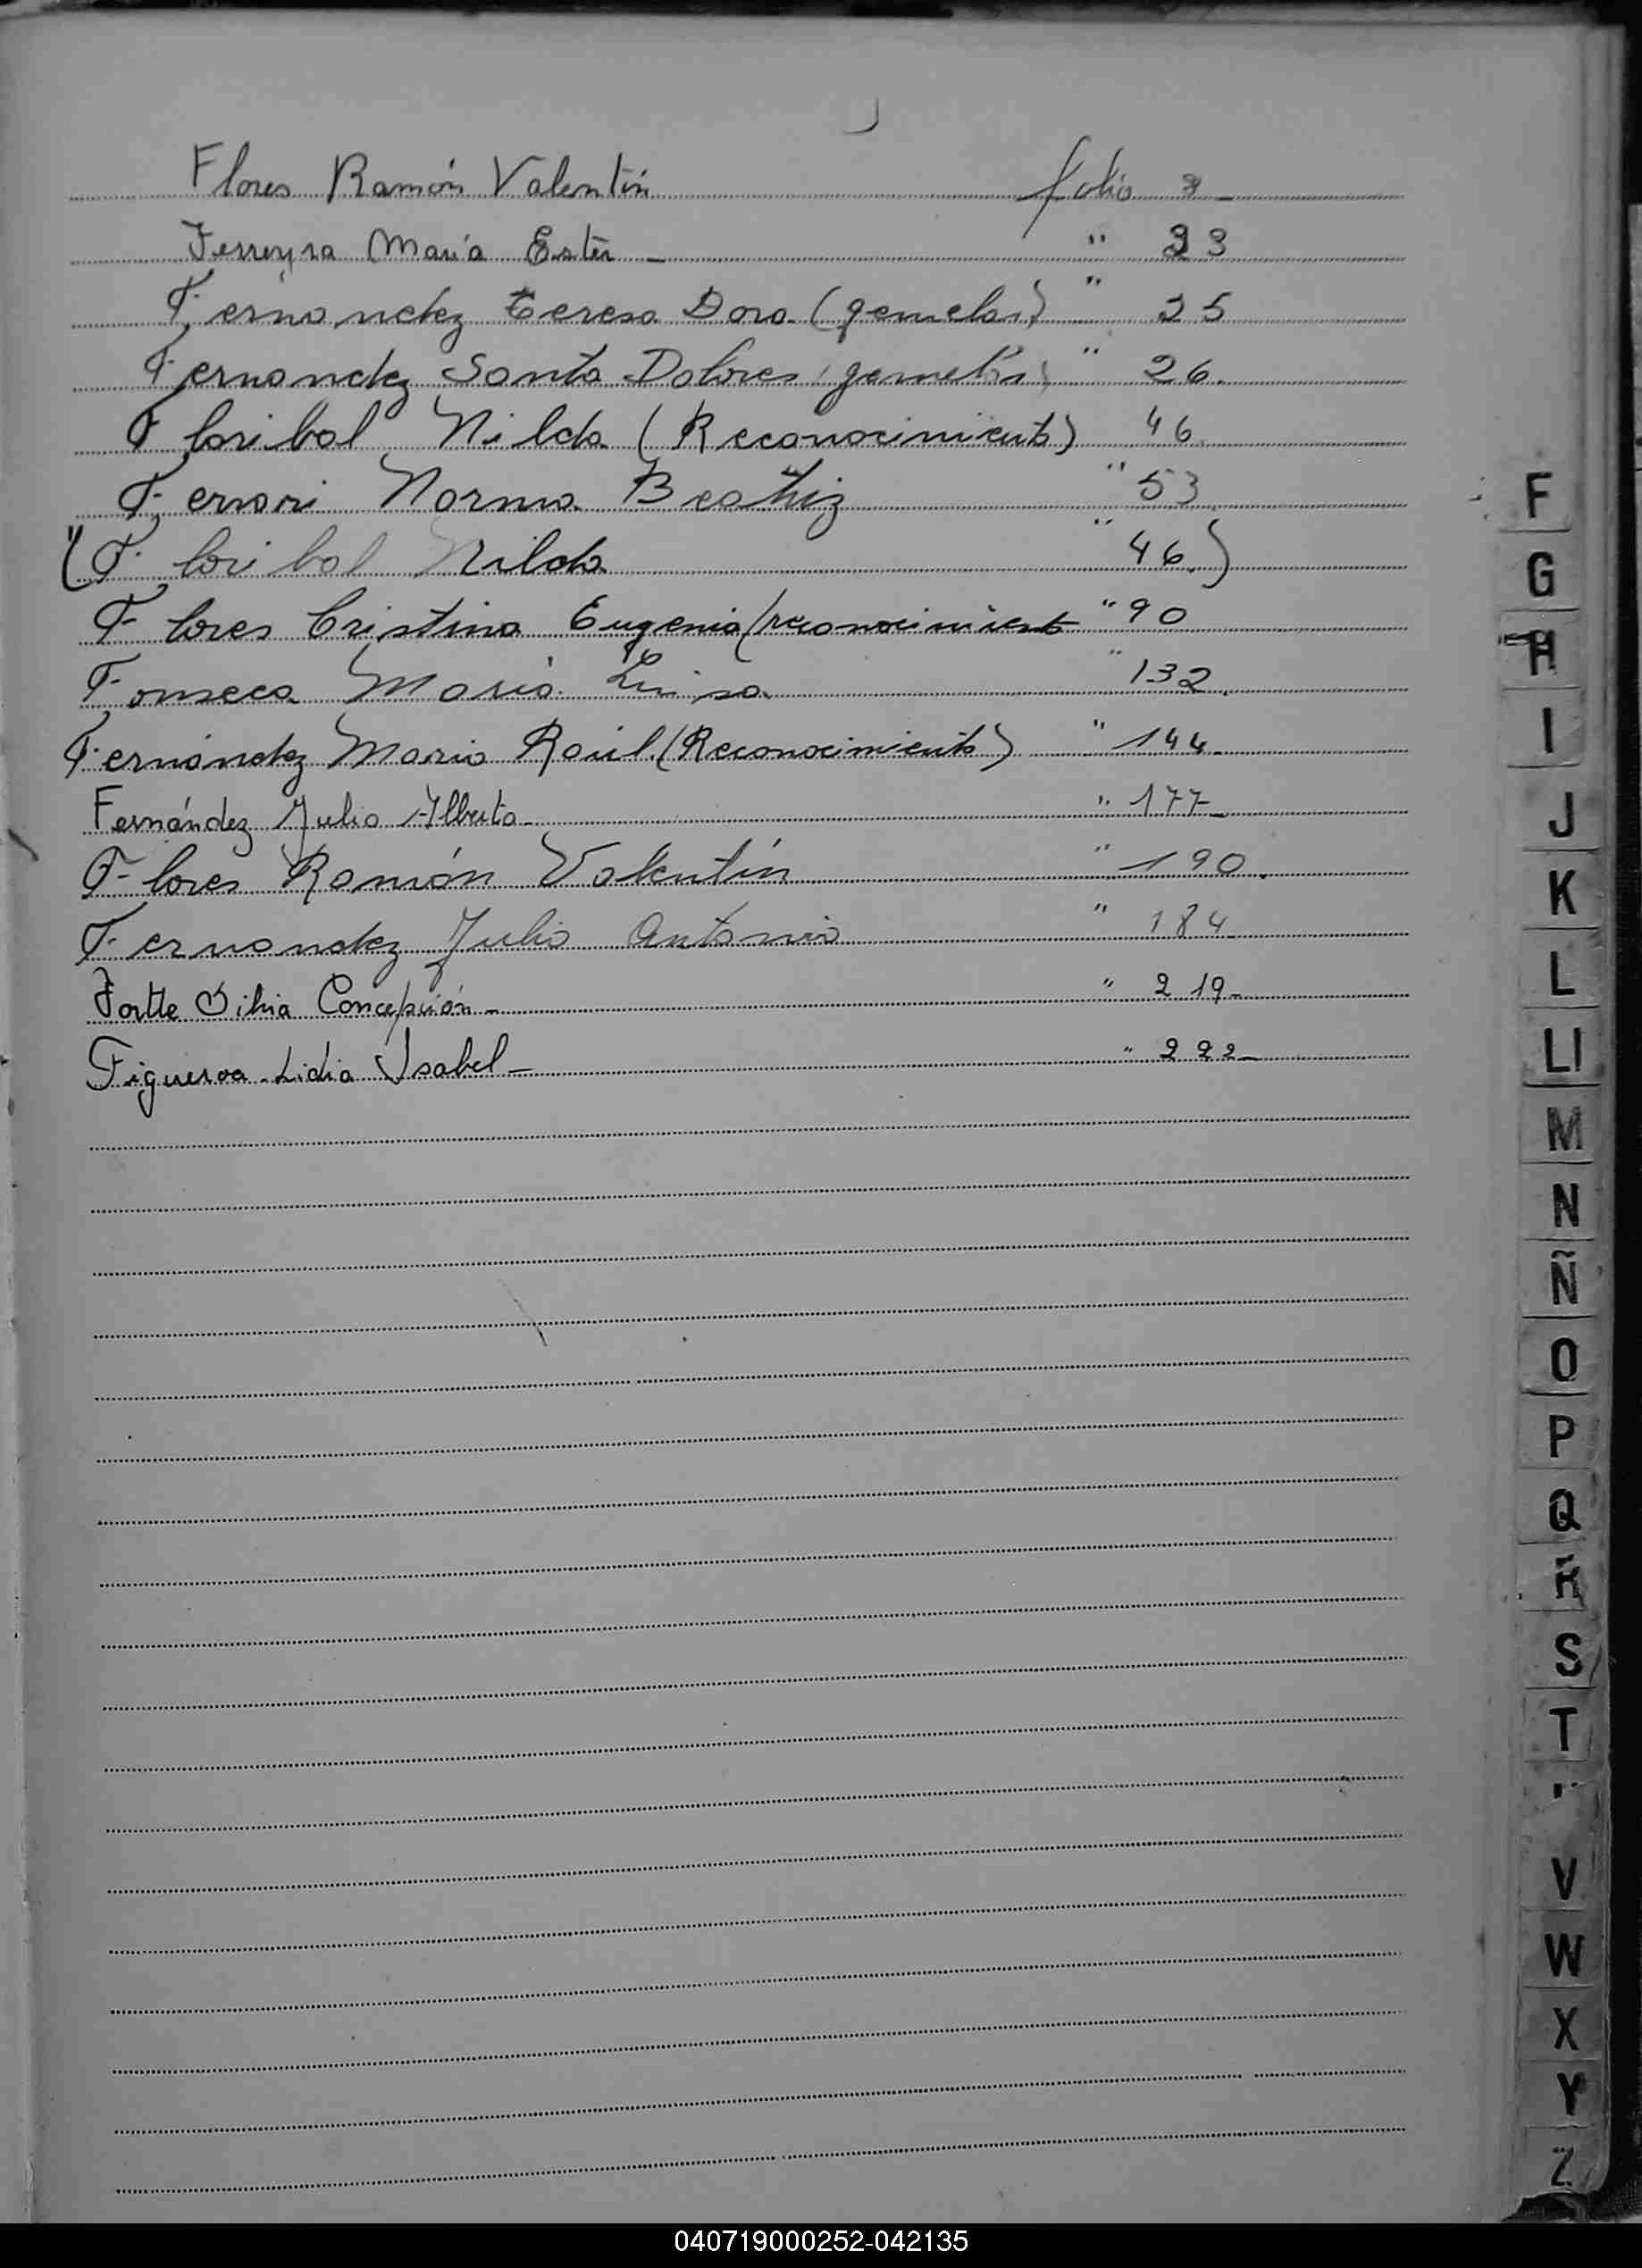 Flores Ramón Valentín folio 3 -
Ferreyra María Ester - " 23
Fernandez Teresa Dora (gemelas) " 25
Fernandez Santa Dolores (gemelas) " 26.
Floribal Nilda (Reconocimiento) 46.
Ferrari Norma Beatriz " 53
(Floribal Nilda " 46.)
Flores Cristina Eugenia (reconocimiento " 90
Fonseca María Luisa " 132.
Fernández Mario Raúl (Reconocimiento) " 144.
Fernández Julio Alberto - " 177 -
Flores Ramón Valentín " 190.
Fernandez Julio Antonio " 184
Concepción - " 219 -
Figueroa Lidia Isabel - " 222 -
F
G
H
I
J
K
L
Ll
M
N
Ñ
O
P
Q
R
S
T
V
W
X
Y
Z
040719000252-042135